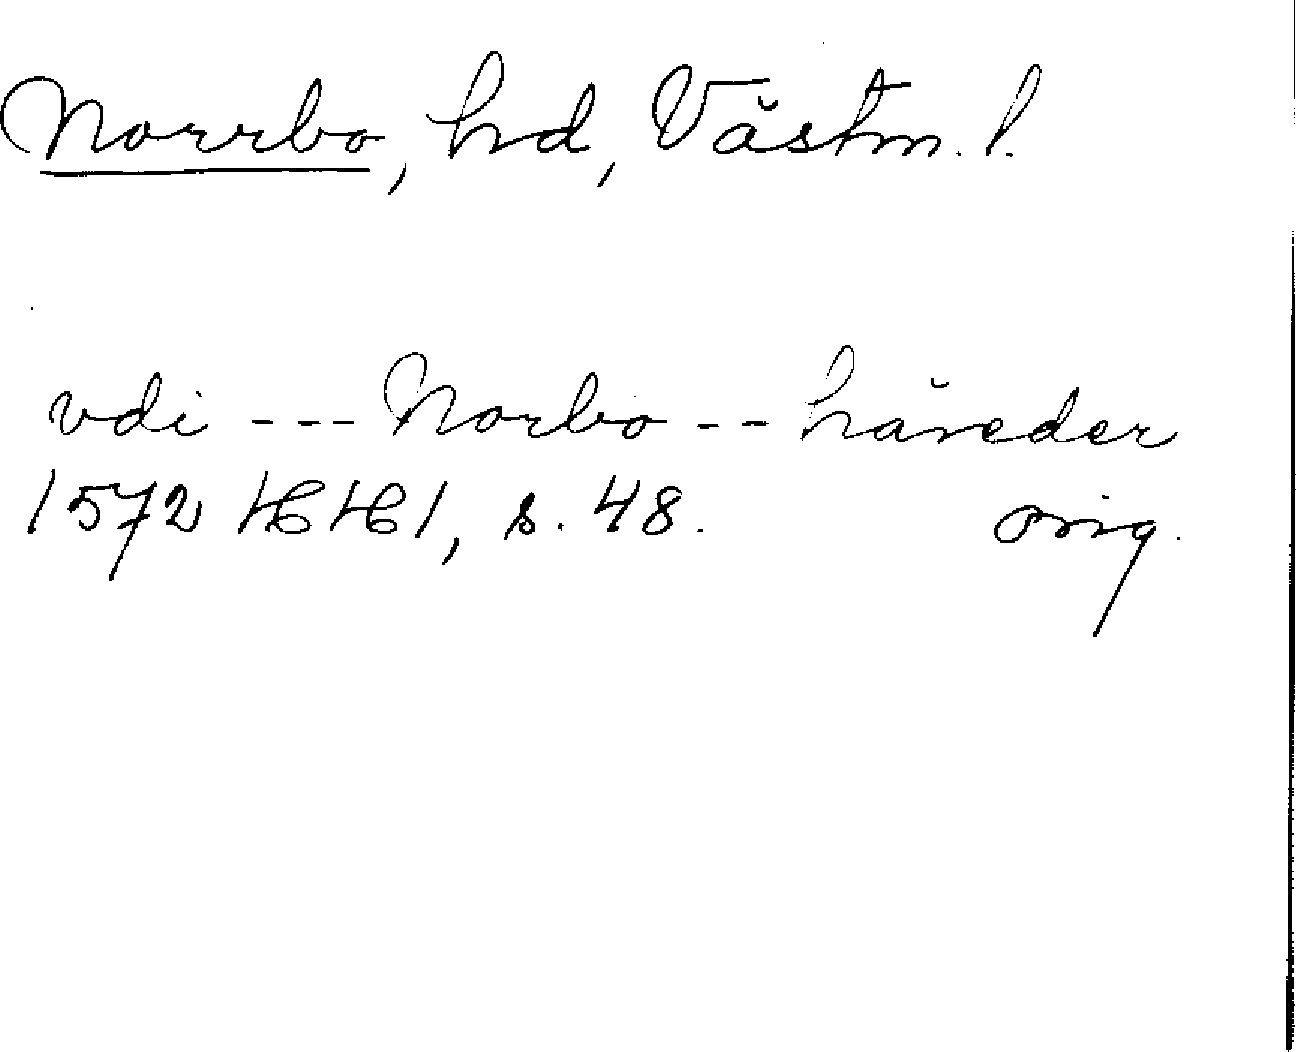 Norrbo, hd, Västm. l.
vdi --- Norbo -- häreder
1572 HH 1, s. 48. orig.